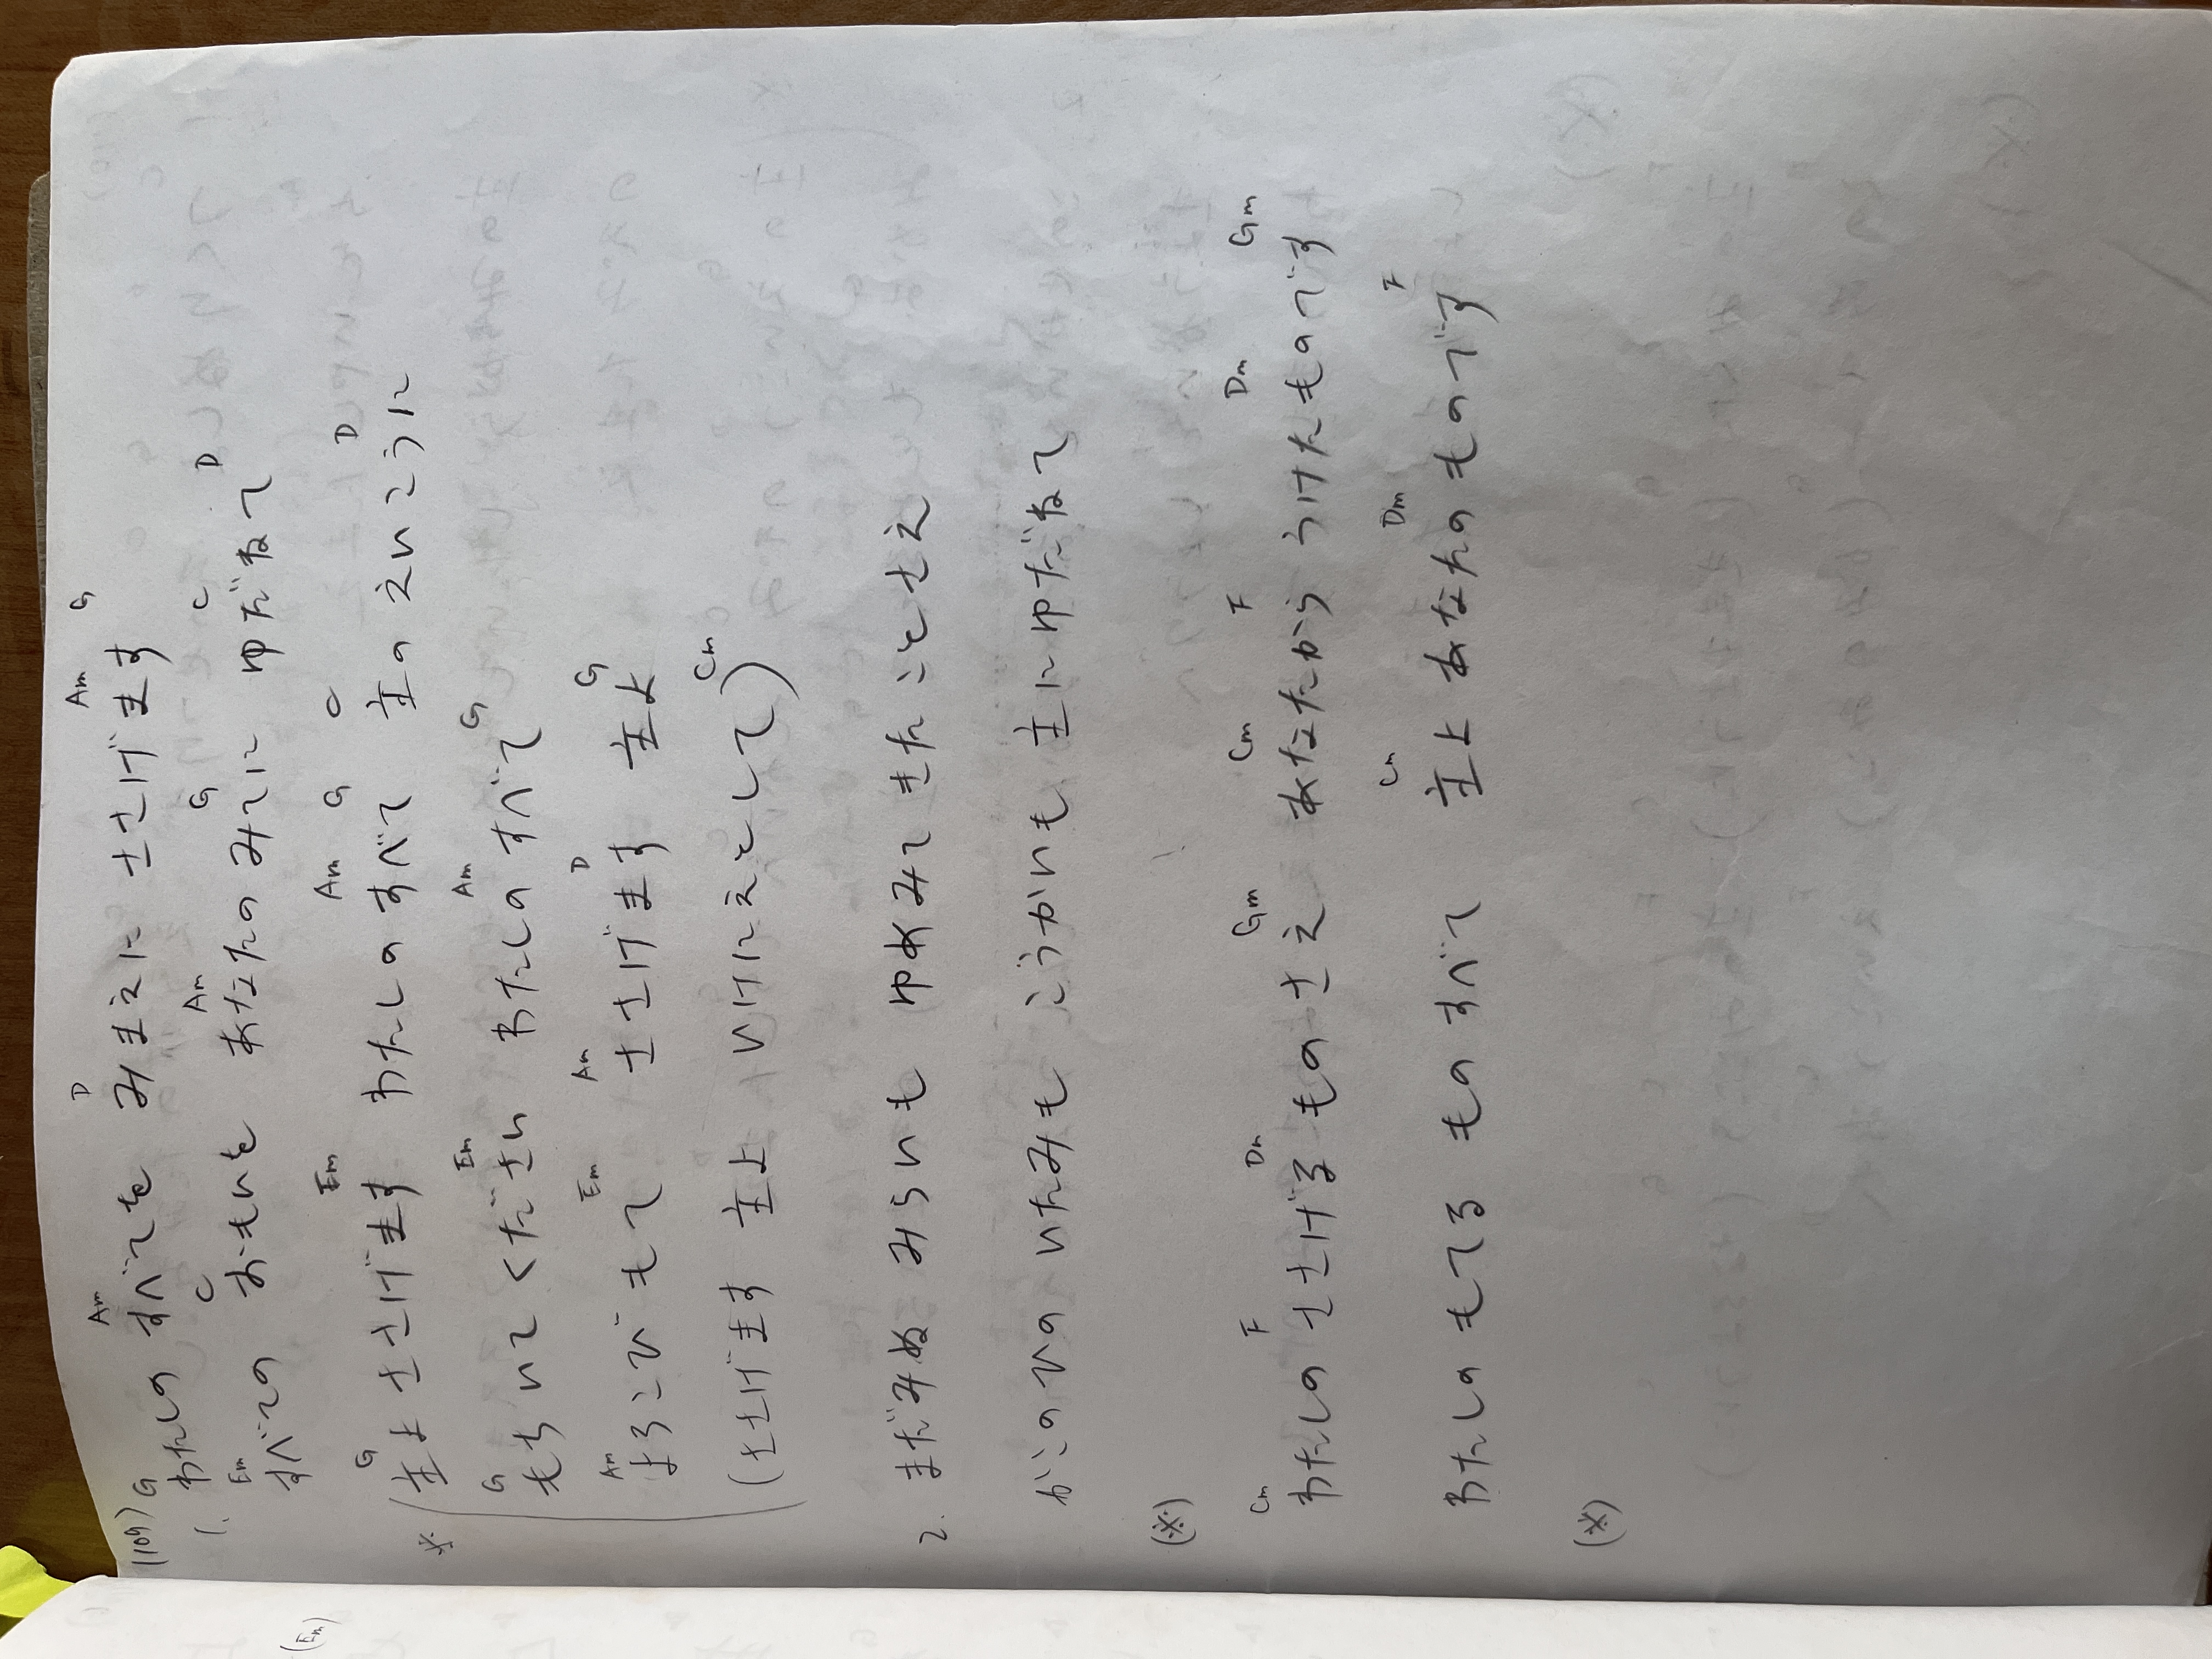 (109)
G Am D Am G
1. わたしの すべてを みまえに ささげます
Em C Am G C D
すべての おもいを あなたのみてに ゆだねて
G Em Am G C D
※ (主よ ささげます わたしのすべて 主の えいこうに
G Em Am G
もちいてください わたしの すべて
Am Em Am D G
よろこびもて ささげます 主よ
Cm
(ささげます 主よ いけにえとして)
2. まだみぬ みらいも ゆめみて きた ことさえ
かこのひの いたみも こうかいも 主に ゆだねて
(※)
Cm F Dm Gm Cm F Dm Gm
わたしの ささげる ものさえ あなたから うけたものです
Cm Dm F
わたしの もてる もの すべて 主よ あなたの ものです
(※)
(Em)